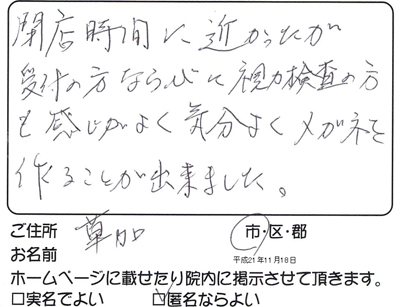 閉店時間に近かったが
受付の方ならびに視力検査の方
も感じがよく気分よくメガネを
作ることが出来ました。
ご住所 草加 市・区・郡
お名前 平成21年11月18日
ホームページに載せたり院内に掲示させて頂きます。
□実名でよい ☑匿名ならよい